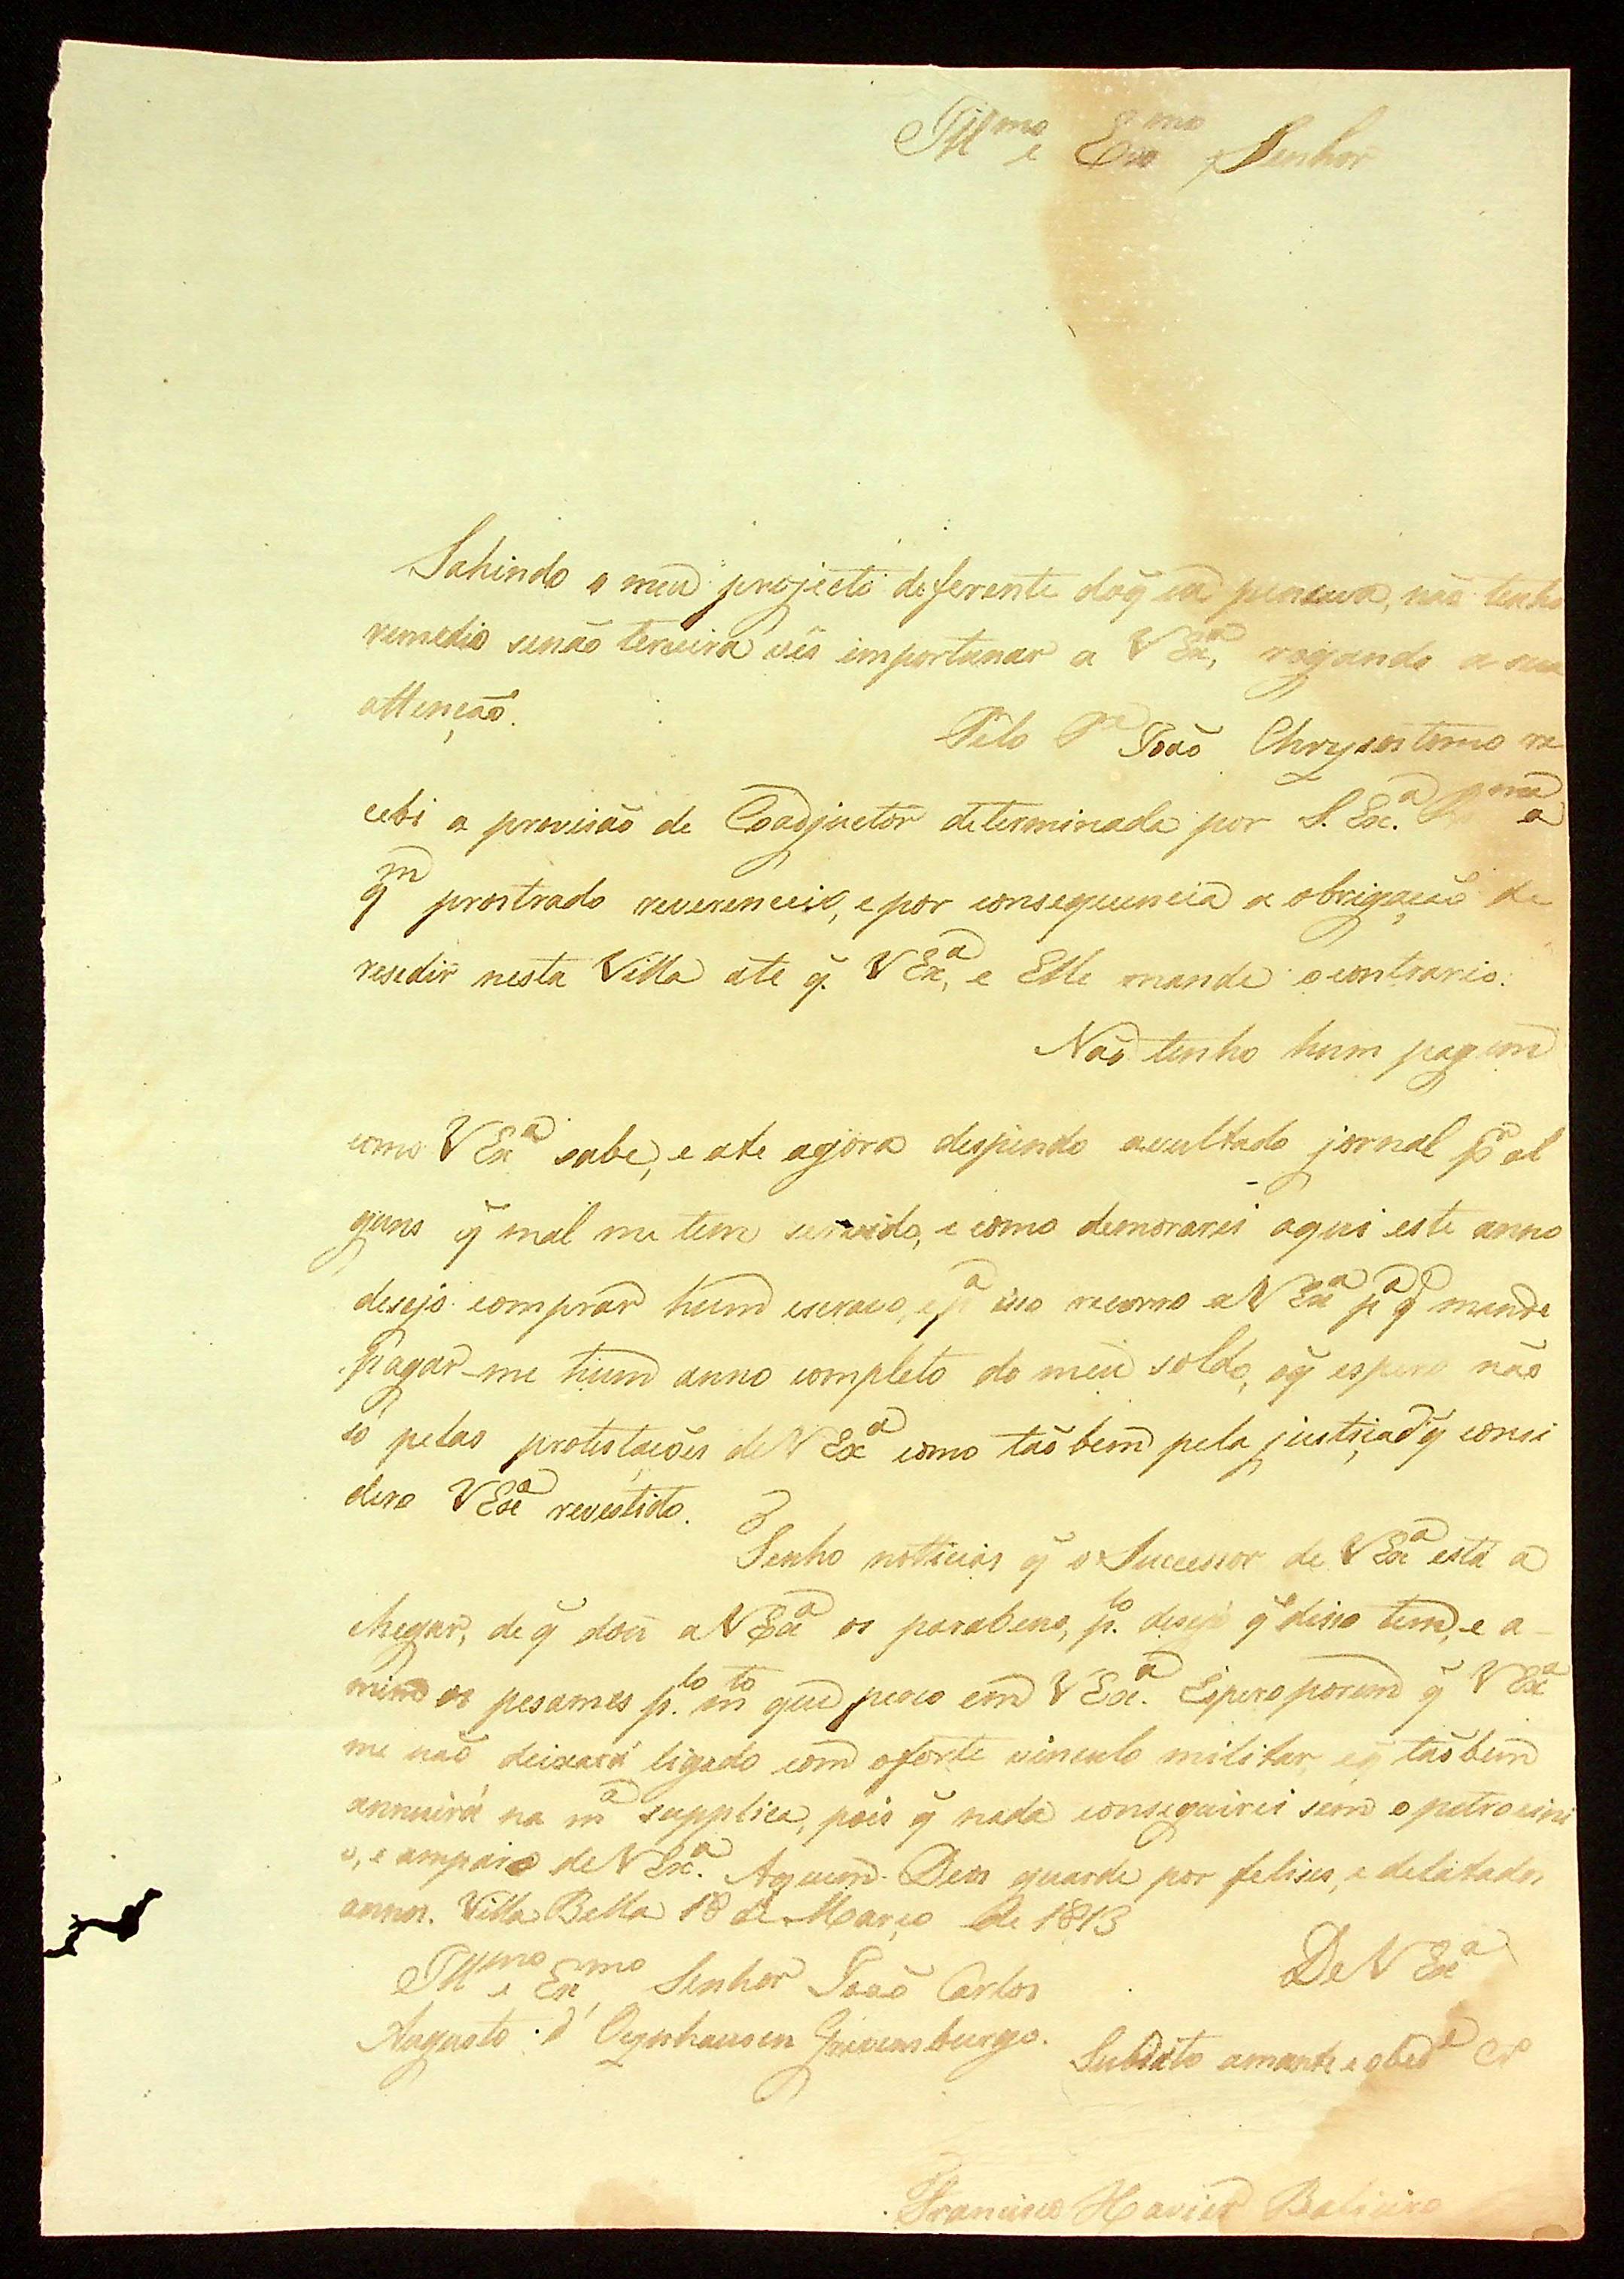 Ill^mo e Ex^mo Senhor
Sahindo o meu projecto deferente doq̃ eu pensava, não tenho
remedio senão terceira vês importunar a V Ex^a, rogando a sua
attenção.
Pelo P^e João Chrysostomo re
cebi a provisão de Coadjuctor determinada por S. Ex.^a R^ma a
q^m prostrado reverenceio, e por consequencia a obrigação de
resedir nesta Villa ate q̃ V Ex^a, e Elle mande o contrario.
Não tenho hum pagem
como V Ex^a sabe, e ate agora despendo avultado jornal p^r al
guns q̃ mal me tem servido, e como demorarei aqui este anno
desejo comprar hum escravo, e p^a isso recorro a V Ex^a p^a q̃ mande
pagar-me hum anno completo do meu soldo, oq̃ espero não
só pelas protestações de V Ex^a como tãobem pela justiça d q̃ consi
dero V Ex^a revestido.
Tenho notticias q̃ o Sucessor de V Ex^a está a
chegar, de q̃ dou a V Ex^a os parabens, p.^lo desejo q̃ disso tem, e a
mim os pesames p.^lo m^to que perco em V Ex^a. Espero porem q̃ V Ex^a
me não deixará ligado com o forte vinculo militar, eq̃ tãobem
annuirá na m^a supplica, pois q̃ nada conseguirei sem o patrocini
o, e amparo de V Ex^a. Aquem Deos guarde por felises, e delatados
annos. Villa Bella 18 de Março de 1813
Ill^mo e Ex^mo Senhor João Carlos
De V Ex^a
Augusto d' Oeynhausen Grevensburgo.
Subdito amante e obed^e
Francisco Xavier